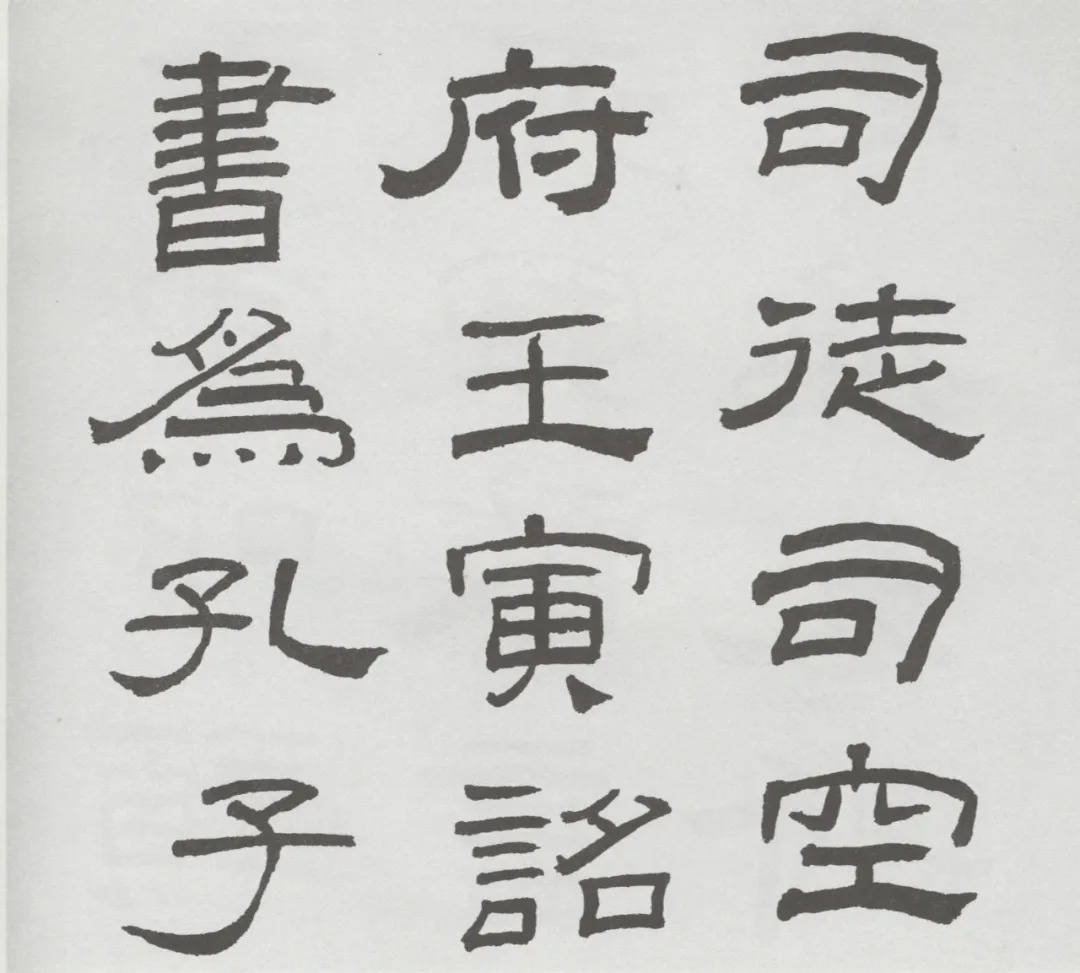 司徒司空
府王寅詔
書為孔子